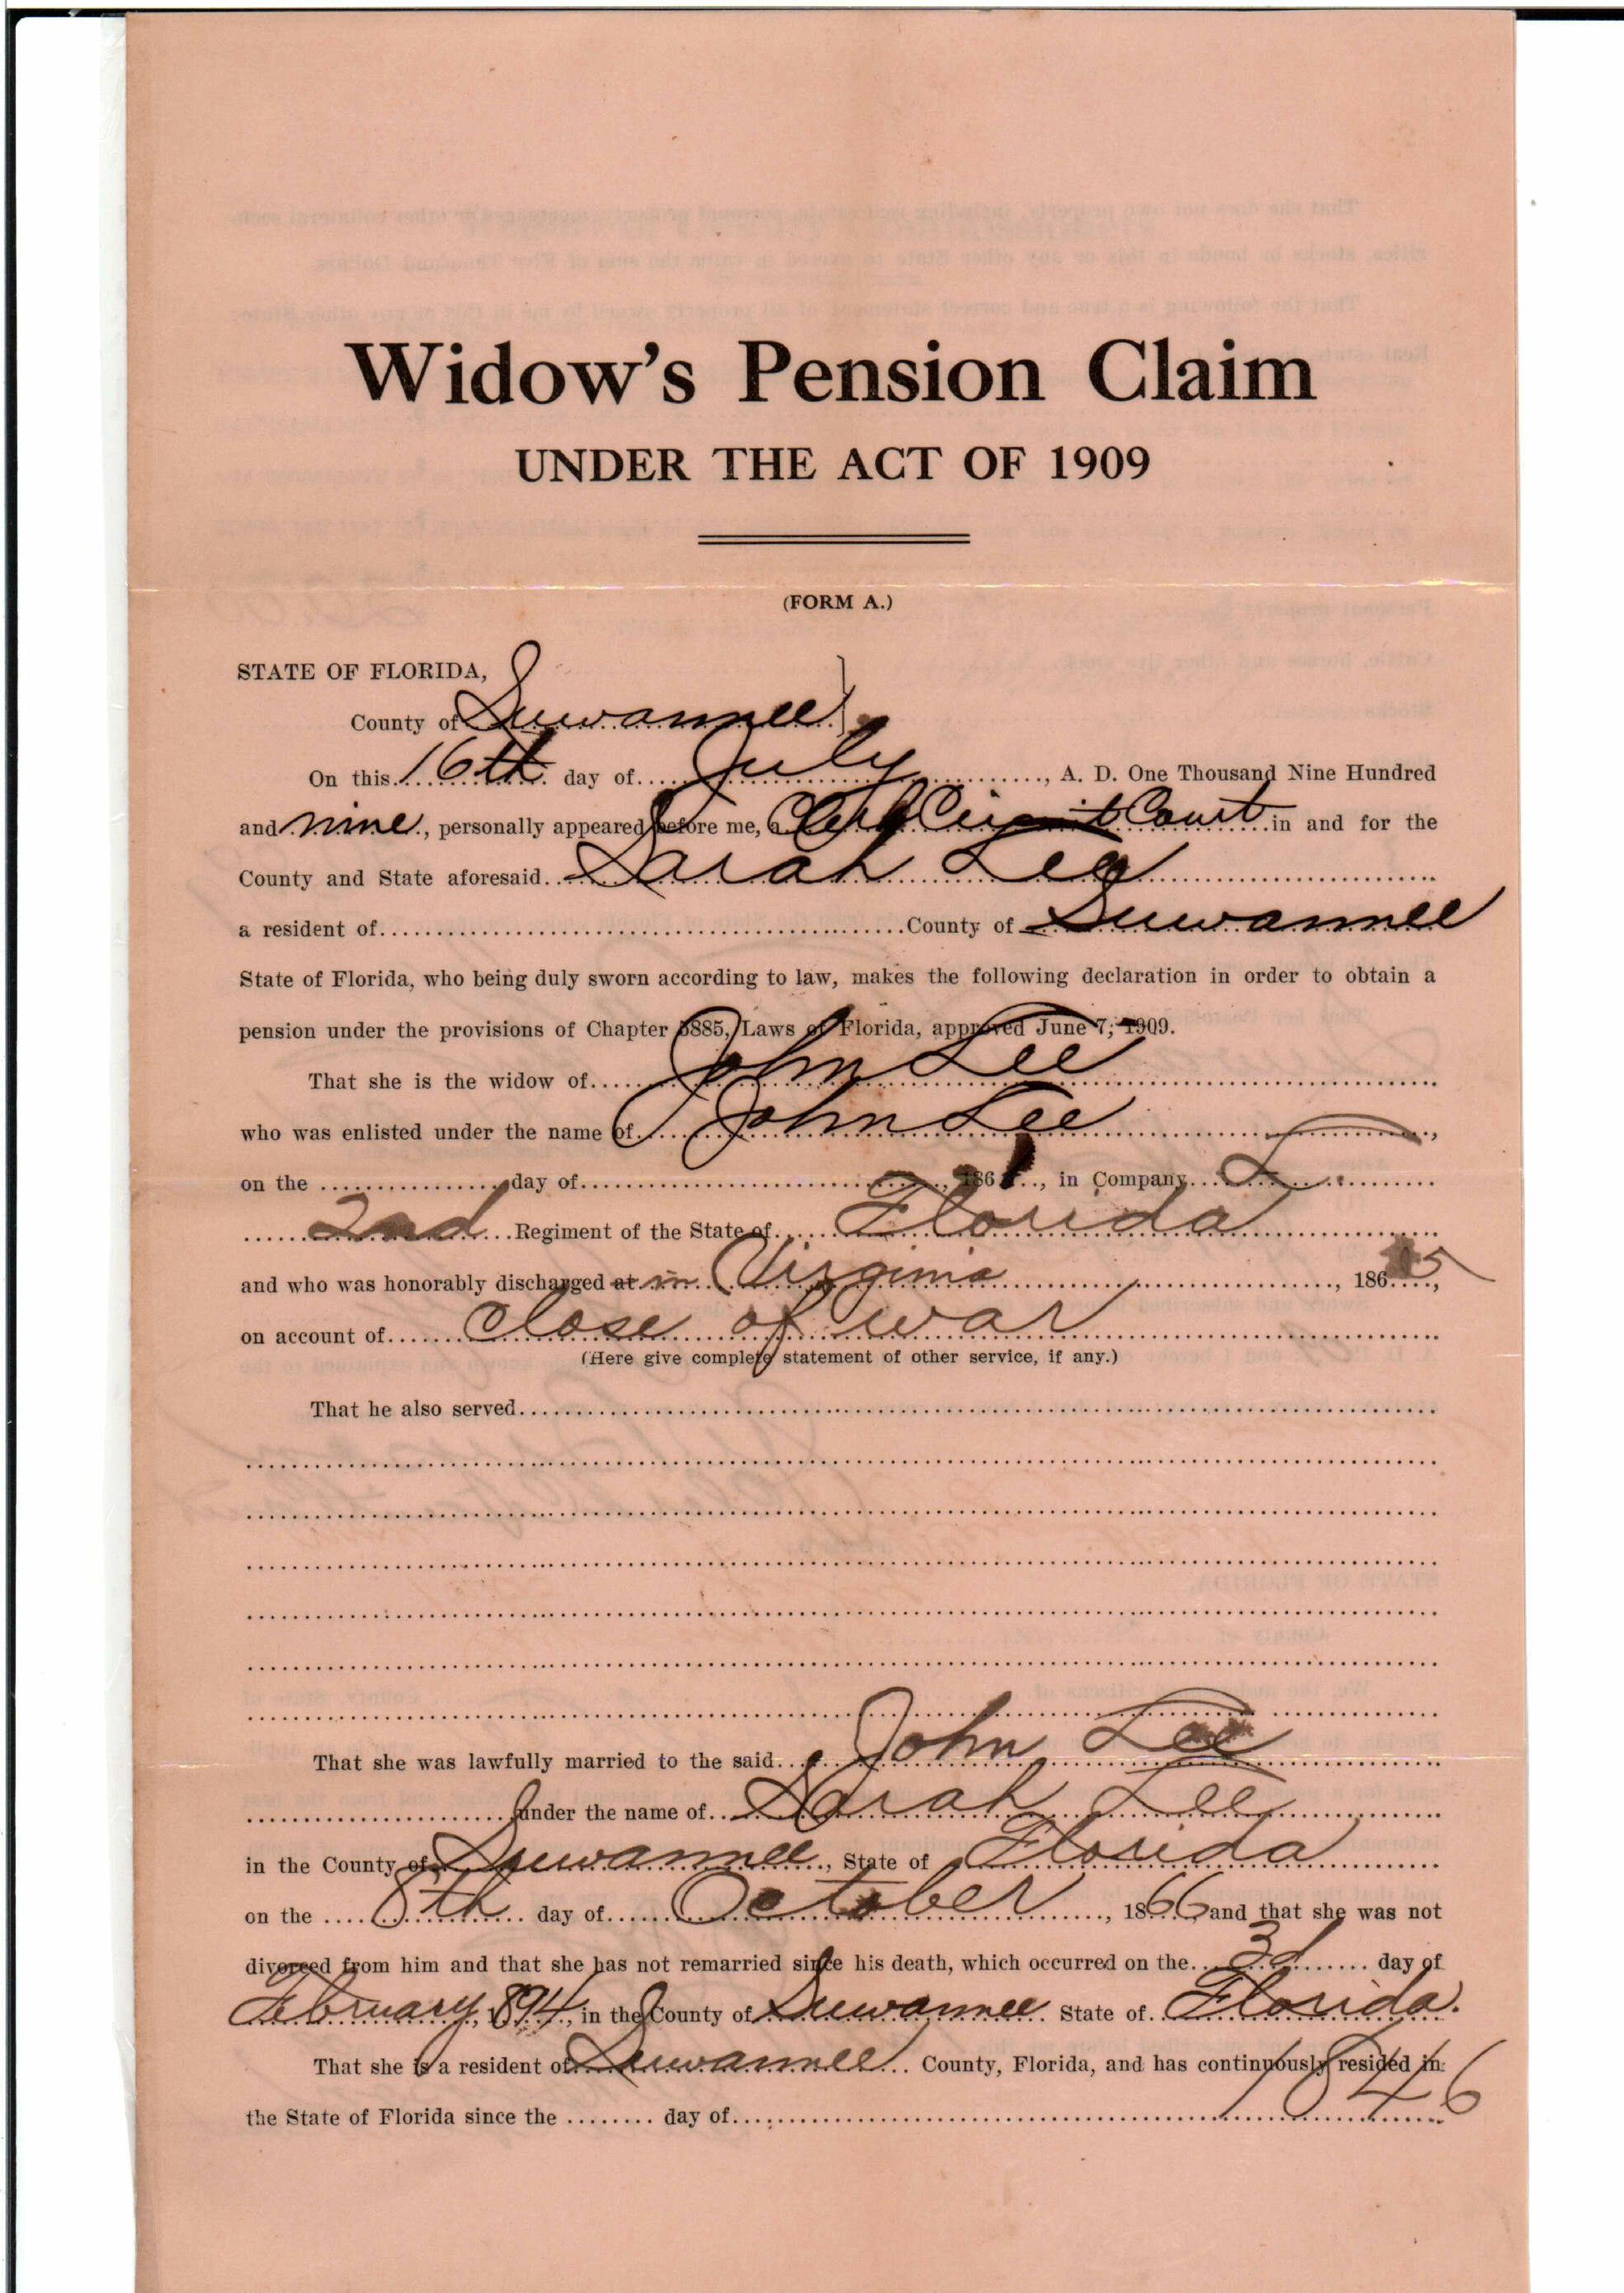 Widow's Pension Claim
UNDER THE ACT OF 1909
(FORM A.)
STATE OF FLORIDA,
County of Suwannee
On this 16th day of July, A. D. One Thousand Nine Hundred
and nine, personally appeared before me, a Clerk Circuit Court in and for the
County and State aforesaid Sarah Lee
a resident of County of Suwannee
State of Florida, who being duly sworn according to law, makes the following declaration in order to obtain a
pension under the provisions of Chapter 5885, Laws of Florida, approved June 7, 1909.
That she is the widow of John Lee
who was enlisted under the name of John Lee,
on the day of, 1861, in Company
2nd Regiment of the State of Florida
and who was honorably discharged at in Virginia, 1865,
on account of close of war
(Here give complete statement of other service, if any.)
That he also served
That she was lawfully married to the said John Lee
under the name of Sarah Lee
in the County of Suwannee, State of Florida
on the 8th day of October, 1866 and that she was not
divorced from him and that she has not remarried since his death, which occurred on the 3d day of
February, 1894, in the County of Suwannee State of Florida.
That she is a resident of Suwannee County, Florida, and has continuously resided in
the State of Florida since the day of 1846